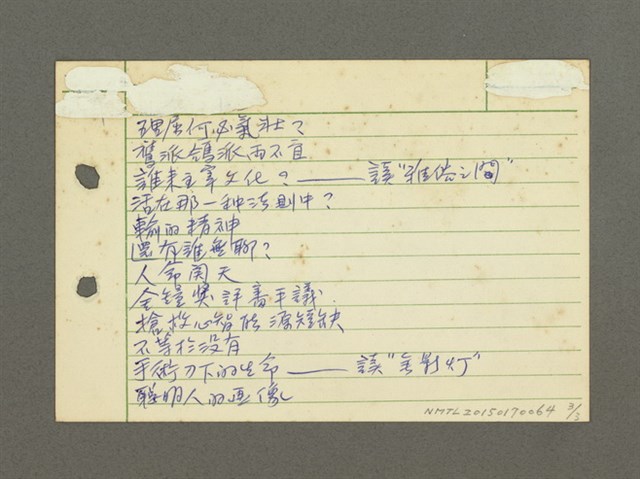 理屈何必氣壯？
鷹派鴿派兩不宜
誰來主宰文化？——談"雅俗之間"
活在那一种法則中？
輸的精神
還有誰無聊？
人命関天
金鐘獎評審平議.
搶救心智能源短缺
不等於没有
手術刀下的生命——談"無影灯"
聰明人的画像
NMTL20150170064 3/3